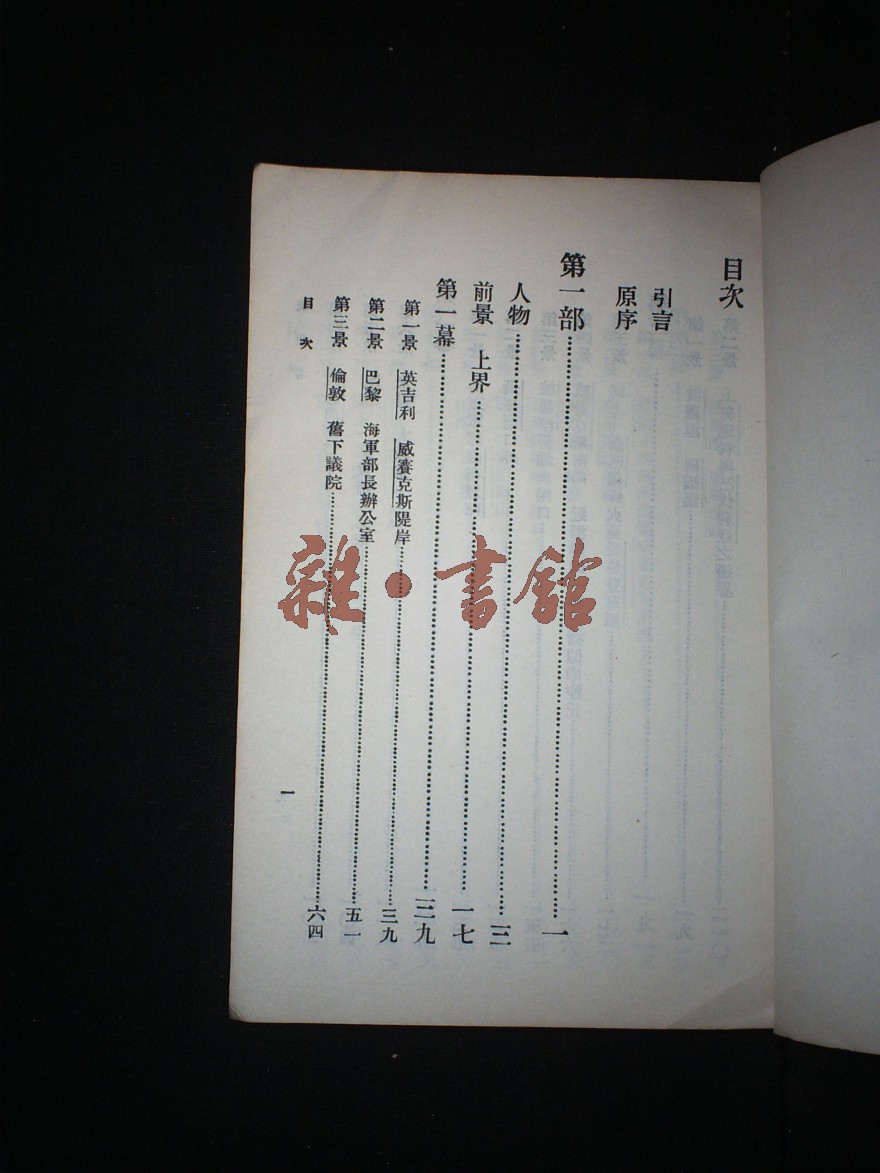 目次
引言
原序
第一部……一
人物……三
前景 上界……一七
第一幕……三九
第一景 英吉利 威賽克斯隄岸……三九
第二景 巴黎 海軍部長辦公室……五一
第三景 倫敦 舊下議院……六四
目次
一
雜·書館